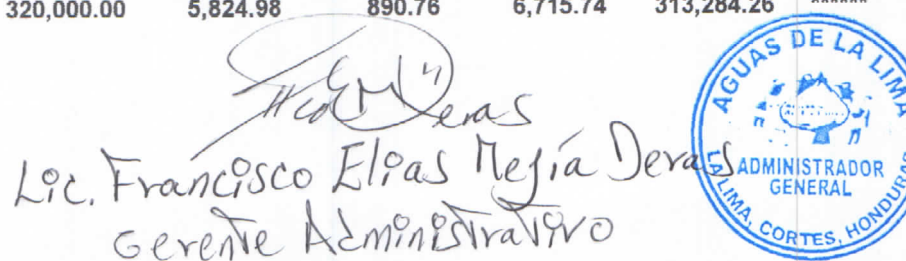 320,000.00 5,824.98 890.76 6,715.74 313,284.26 ******
Deras
Lic. Francisco Elias Mejía Deras
Gerente Administrativo
AGUAS DE LA LIMA
ADMINISTRADOR
GENERAL
LA LIMA, CORTES, HONDURAS